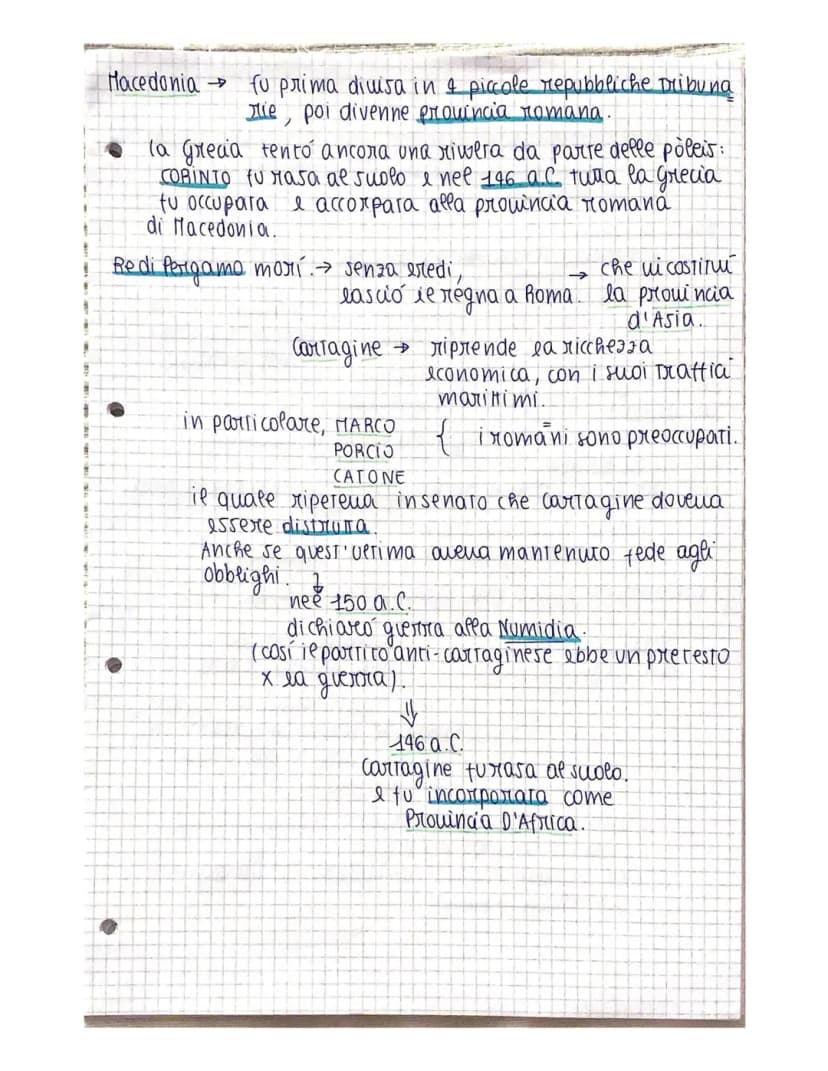 Macedonia → fu prima divisa in 4 piccole repubbliche tribuna
rie, poi divenne provincia romana.
la Grecia tentó ancora una rivolta da parte delle pòleis:
CORINTO fu rasa al suolo e nel 146 a.C. tutta la Grecia
fu occupata e accorpata alla provincia romana
di Macedonia.
Re di Pergamo morí. → senza eredi, → che vi costituí
lasció il regna a Roma. la provincia
d'Asia.
Cartagine → riprende la ricchezza
economica, con i suoi traffici
marittimi.
in particolare, MARCO { i romani sono preoccupati.
PORCIO
CATONE
il quale ripeteva in senato che Cartagine doveva
essere distrutta.
Anche se quest'ultima aveva mantenuto fede agli
obblighi. ↓
nel 150 a.C.
dichiaró guerra alla Numidia.
(cosí il partito anti-cartaginese ebbe un pretesto
x la guerra).
⇓
146 a.C.
Cartagine fu rasa al suolo.
e fu incorporata come
Provincia D'Africa.